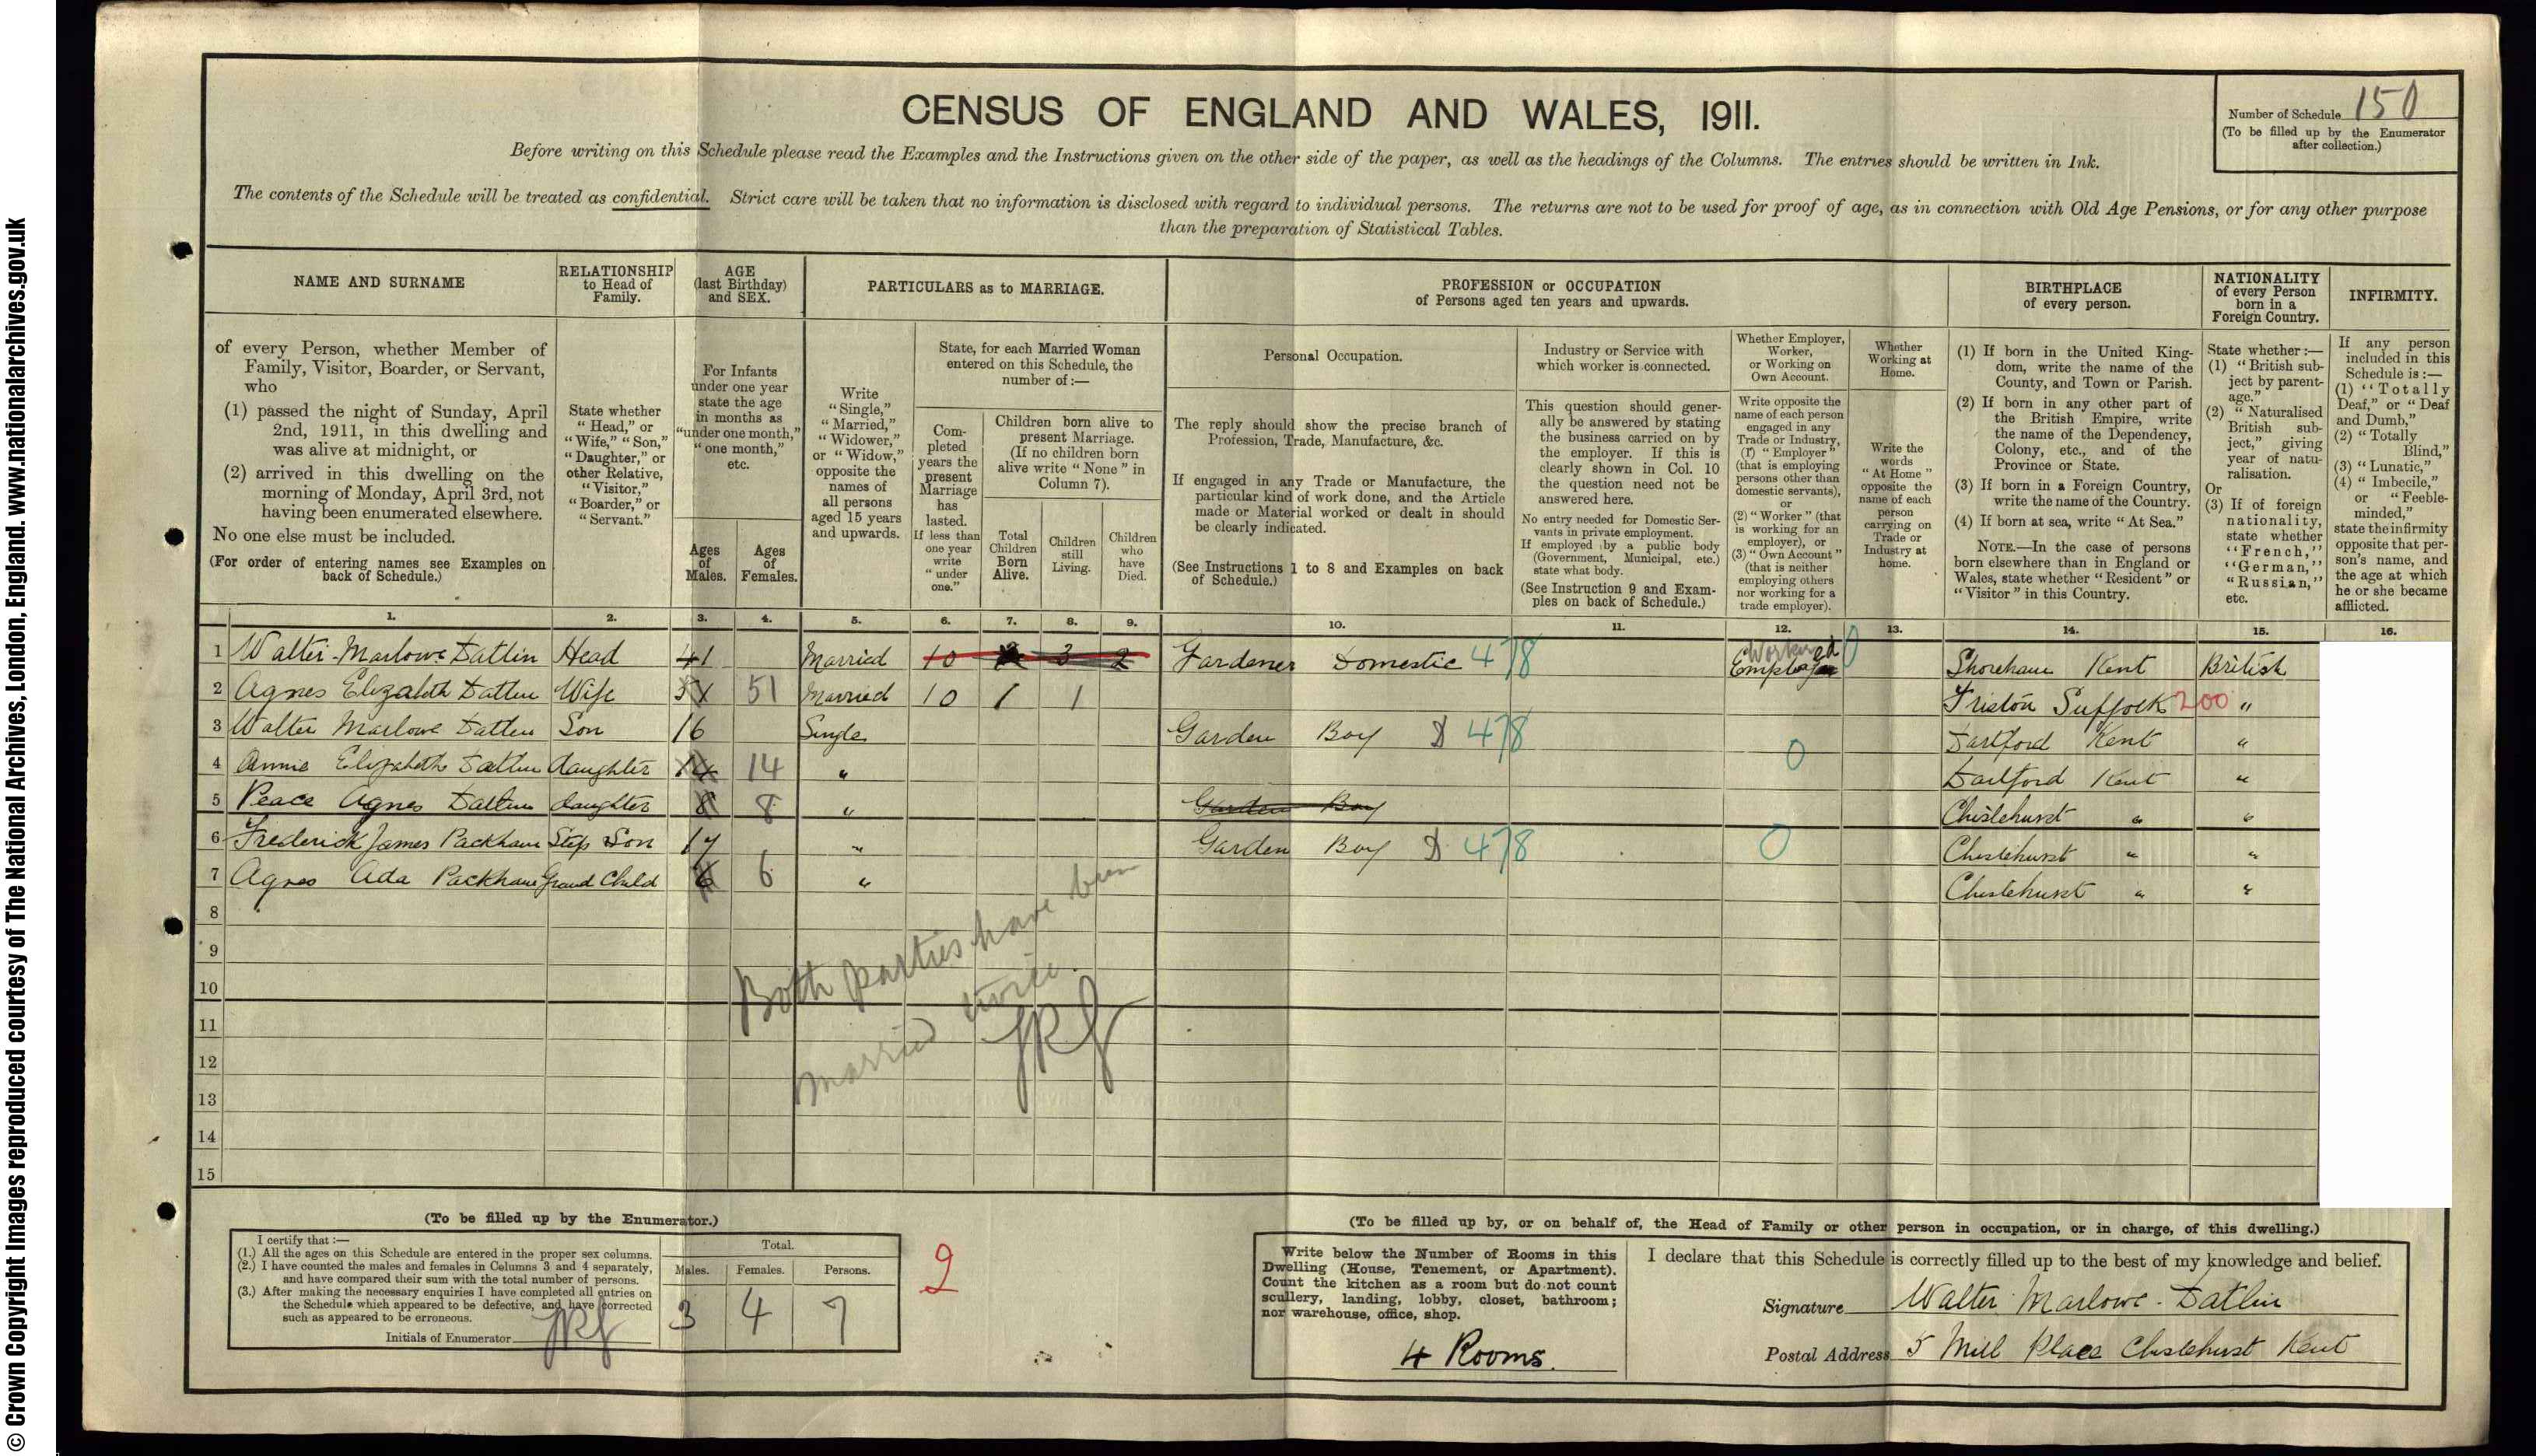 © Crown Copyright Images reproduced courtesy of The National Archives, London, England. www.nationalarchives.gov.uk
CENSUS OF ENGLAND AND WALES, 1911.
Number of Schedule 150
(To be filled up by the Enumerator
after collection.)
Before writing on this Schedule please read the Examples and the Instructions given on the other side of the paper, as well as the headings of the Columns. The entries should be written in Ink.
The contents of the Schedule will be treated as confidential. Strict care will be taken that no information is disclosed with regard to individual persons. The returns are not to be used for proof of age, as in connection with Old Age Pensions, or for any other purpose
than the preparation of Statistical Tables.
NAME AND SURNAME
of every Person, whether Member of
Family, Visitor, Boarder, or Servant,
who
(1) passed the night of Sunday, April
2nd, 1911, in this dwelling and
was alive at midnight, or
(2) arrived in this dwelling on the
morning of Monday, April 3rd, not
having been enumerated elsewhere.
No one else must be included.
(For order of entering names see Examples on
back of Schedule.)
RELATIONSHIP
to Head of
Family.
State whether
"Head," or
"Wife," "Son,"
"Daughter," or
other Relative,
"Visitor,"
"Boarder," or
"Servant."
AGE
(last Birthday)
and SEX.
For Infants
under one year
state the age
in months as
"under one month,"
"one month,"
etc.
Ages
of
Males.
Ages
of
Females.
PARTICULARS as to MARRIAGE.
Write
"Single,"
"Married,"
"Widower,"
or "Widow,"
opposite the
names of
all persons
aged 15 years
and upwards.
State, for each Married Woman
entered on this Schedule, the
number of:—
Com-
pleted
years the
present
Marriage
has
lasted.
If less than
one year
write
"under
one."
Children born alive to
present Marriage.
(If no children born
alive write "None" in
Column 7).
Total
Children
Born
Alive.
Children
still
Living.
Children
who
have
Died.
PROFESSION or OCCUPATION
of Persons aged ten years and upwards.
Personal Occupation.
The reply should show the precise branch of
Profession, Trade, Manufacture, &c.
If engaged in any Trade or Manufacture, the
particular kind of work done, and the Article
made or Material worked or dealt in should
be clearly indicated.
(See Instructions 1 to 8 and Examples on back
of Schedule.)
Industry or Service with
which worker is connected.
This question should gener-
ally be answered by stating
the business carried on by
the employer. If this is
clearly shown in Col. 10
the question need not be
answered here.
No entry needed for Domestic Ser-
vants in private employment.
If employed by a public body
(Government, Municipal, etc.)
state what body.
(See Instruction 9 and Exam-
ples on back of Schedule.)
Whether Employer,
Worker,
or Working on
Own Account.
Write opposite the
name of each person
engaged in any
Trade or Industry,
(1) "Employer"
(that is employing
persons other than
domestic servants),
or
(2) "Worker" (that
is working for an
employer), or
(3) "Own Account"
(that is neither
employing others
nor working for a
trade employer).
Whether
Working at
Home.
Write the
words
"At Home"
opposite the
name of each
person
carrying on
Trade or
Industry at
home.
BIRTHPLACE
of every person.
(1) If born in the United King-
dom, write the name of the
County, and Town or Parish.
(2) If born in any other part of
the British Empire, write
the name of the Dependency,
Colony, etc., and of the
Province or State.
(3) If born in a Foreign Country,
write the name of the Country.
(4) If born at sea, write "At Sea."
NOTE.—In the case of persons
born elsewhere than in England or
Wales, state whether "Resident" or
"Visitor" in this Country.
NATIONALITY
of every Person
born in a
Foreign Country.
State whether:—
(1) "British sub-
ject by parent-
age."
(2) "Naturalised
British sub-
ject," giving
year of natu-
ralisation.
Or
(3) If of foreign
nationality,
state whether
"French,"
"German,"
"Russian,"
etc.
INFIRMITY.
If any person
included in this
Schedule is:—
(1) "Totally
Deaf," or "Deaf
and Dumb,"
(2) "Totally
Blind,"
(3) "Lunatic,"
(4) "Imbecile,"
or "Feeble-
minded,"
state the infirmity
opposite that per-
son's name, and
the age at which
he or she became
afflicted.
1. 2. 3. 4. 5. 6. 7. 8. 9. 10. 11. 12. 13. 14. 15. 16.
1 Walter Marlowe Datlin Head 41 Married 10 3 2 Gardener Domestic 478 Worker 0 Shoreham Kent British
2 Agnes Elizabeth Datlin Wife 51 Married 10 1 1 Friston Suffolk 200 "
3 Walter Marlowe Datlin Son 16 Single Garden Boy D 478 0 Dartford Kent "
4 Annie Elizabeth Datlin daughter 14 14 " Dartford Kent "
5 Peace Agnes Datlin daughter 8 8 " Garden Boy Chislehurst " "
6 Frederick James Packham Step Son 17 " Garden Boy D 478 0 Chislehurst " "
7 Agnes Ada Packham Grand Child 6 6 " Chislehurst " "
8
9
10
11
12
13
14
15
Both parties have been
married twice
JRJ
(To be filled up by the Enumerator.)
I certify that:—
(1.) All the ages on this Schedule are entered in the proper sex columns.
(2.) I have counted the males and females in Columns 3 and 4 separately,
and have compared their sum with the total number of persons.
(3.) After making the necessary enquiries I have completed all entries on
the Schedule which appeared to be defective, and have corrected
such as appeared to be erroneous.
Initials of Enumerator JRJ
Total.
Males. Females. Persons.
3 4 7
2
(To be filled up by, or on behalf of, the Head of Family or other person in occupation, or in charge, of this dwelling.)
Write below the Number of Rooms in this
Dwelling (House, Tenement, or Apartment).
Count the kitchen as a room but do not count
scullery, landing, lobby, closet, bathroom;
nor warehouse, office, shop.
4 Rooms.
I declare that this Schedule is correctly filled up to the best of my knowledge and belief.
Signature Walter Marlowe Datlin
Postal Address 5 Mill Place Chislehurst Kent